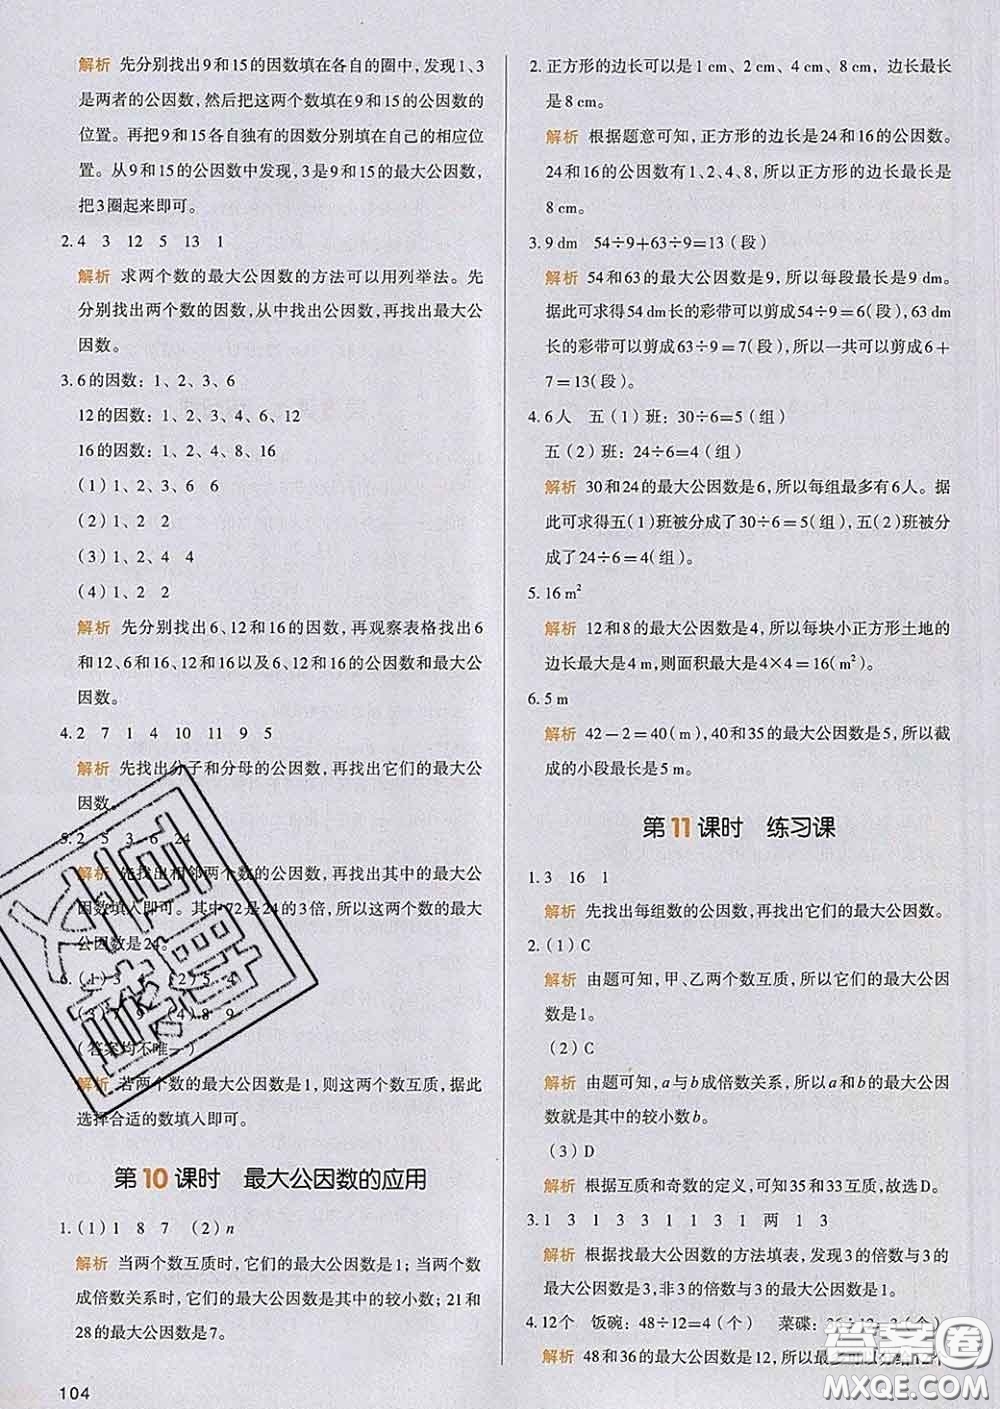 解析 先分别找出9和15的因数填在各自的圈中,发现1、3
是两者的公因数,然后把这两个数填在9和15的公因数的
位置。再把9和15各自独有的因数分别填在自己的相应位
置。从9和15的公因数中发现,3是9和15的最大公因数,
把3圈起来即可。
2.4 3 12 5 13 1
解析 求两个数的最大公因数的方法可以用列举法。先
分别找出两个数的因数,从中找出公因数,再找出最大公
因数。
3.6的因数：1、2、3、6
12的因数：1、2、3、4、6、12
16的因数：1、2、4、8、16
(1)1、2、3、6 6
(2)1、2 2
(3)1、2、4 4
(4)1、2 2
解析 先分别找出6、12和16的因数,再观察表格找出6
和12、6和16、12和16以及6、12和16的公因数和最大公
因数。
4.2 7 1 4 10 11 9 5
解析 先找出分子和分母的公因数,再找出它们的最大公
因数。
5.2 5 3 6 24
解析 先找出相邻两个数的公因数,再找出其中的最大公
因数填入即可。其中72是24的3倍,所以这两个数的最大
公因数是24。
6.(1)3 4 (2)5 4
(3)7 9 (4)8 9
(答案均不唯一)
解析 若两个数的最大公因数是1,则这两个数互质,据此
选择合适的数填入即可。
第10课时 最大公因数的应用
1.(1)1 8 7 (2)n
解析 当两个数互质时,它们的最大公因数是1;当两个数
成倍数关系时,它们的最大公因数是其中的较小数;21和
28的最大公因数是7。
104
2.正方形的边长可以是1 cm、2 cm、4 cm、8 cm,边长最长
是8 cm。
解析 根据题意可知,正方形的边长是24和16的公因数。
24和16的公因数有1、2、4、8,所以正方形的边长最长是
8 cm。
3.9 dm 54÷9+63÷9=13(段)
解析 54和63的最大公因数是9,所以每段最长是9 dm。
据此可求得54 dm长的彩带可以剪成54÷9=6(段),63 dm
长的彩带可以剪成63÷9=7(段),所以一共可以剪成6+
7=13(段)。
4.6人 五(1)班：30÷6=5(组)
五(2)班：24÷6=4(组)
解析 30和24的最大公因数是6,所以每组最多有6人。据
此可求得五(1)班被分成了30÷6=5(组),五(2)班被分
成了24÷6=4(组)。
5.16 m²
解析 12和8的最大公因数是4,所以每块小正方形土地的
边长最大是4 m,则面积最大是4×4=16(m²)。
6.5 m
解析 42-2=40(m),40和35的最大公因数是5,所以截
成的小段最长是5 m。
第11课时 练习课
1.3 16 1
解析 先找出每组数的公因数,再找出它们的最大公因数。
2.(1)C
解析 由题可知,甲、乙两个数互质,所以它们的最大公因
数是1。
(2)C
解析 由题可知,a与b成倍数关系,所以a和b的最大公因
数就是其中的较小数b。
(3)D
解析 根据互质和奇数的定义,可知35和33互质,故选D。
3.1 3 1 3 3 1 1 3 1 两 1 3
解析 根据找最大公因数的方法填表,发现3的倍数与3的
最大公因数是3,非3的倍数与3的最大公因数是1。
4.12个 饭碗：48÷12=4(个) 菜碟：36÷12=3(个)
解析 48和36的最大公因数是12,所以最多可以分给12个
答案圈
MXQE.COM